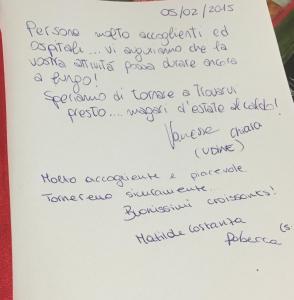 05/02/2015
Persone molto accoglienti ed
ospitali... vi auguriamo che la
vostra attività possa durare ancora
a lungo!
Speriamo di tornare a trovarvi
presto.... magari d'estate al caldo!
Vanessa Chiara
(UDINE)
Molto accogliente e piacevole
Torneremo sicuramente...
Buonissimi croissants!
Matilde Costanza
Roberta (S